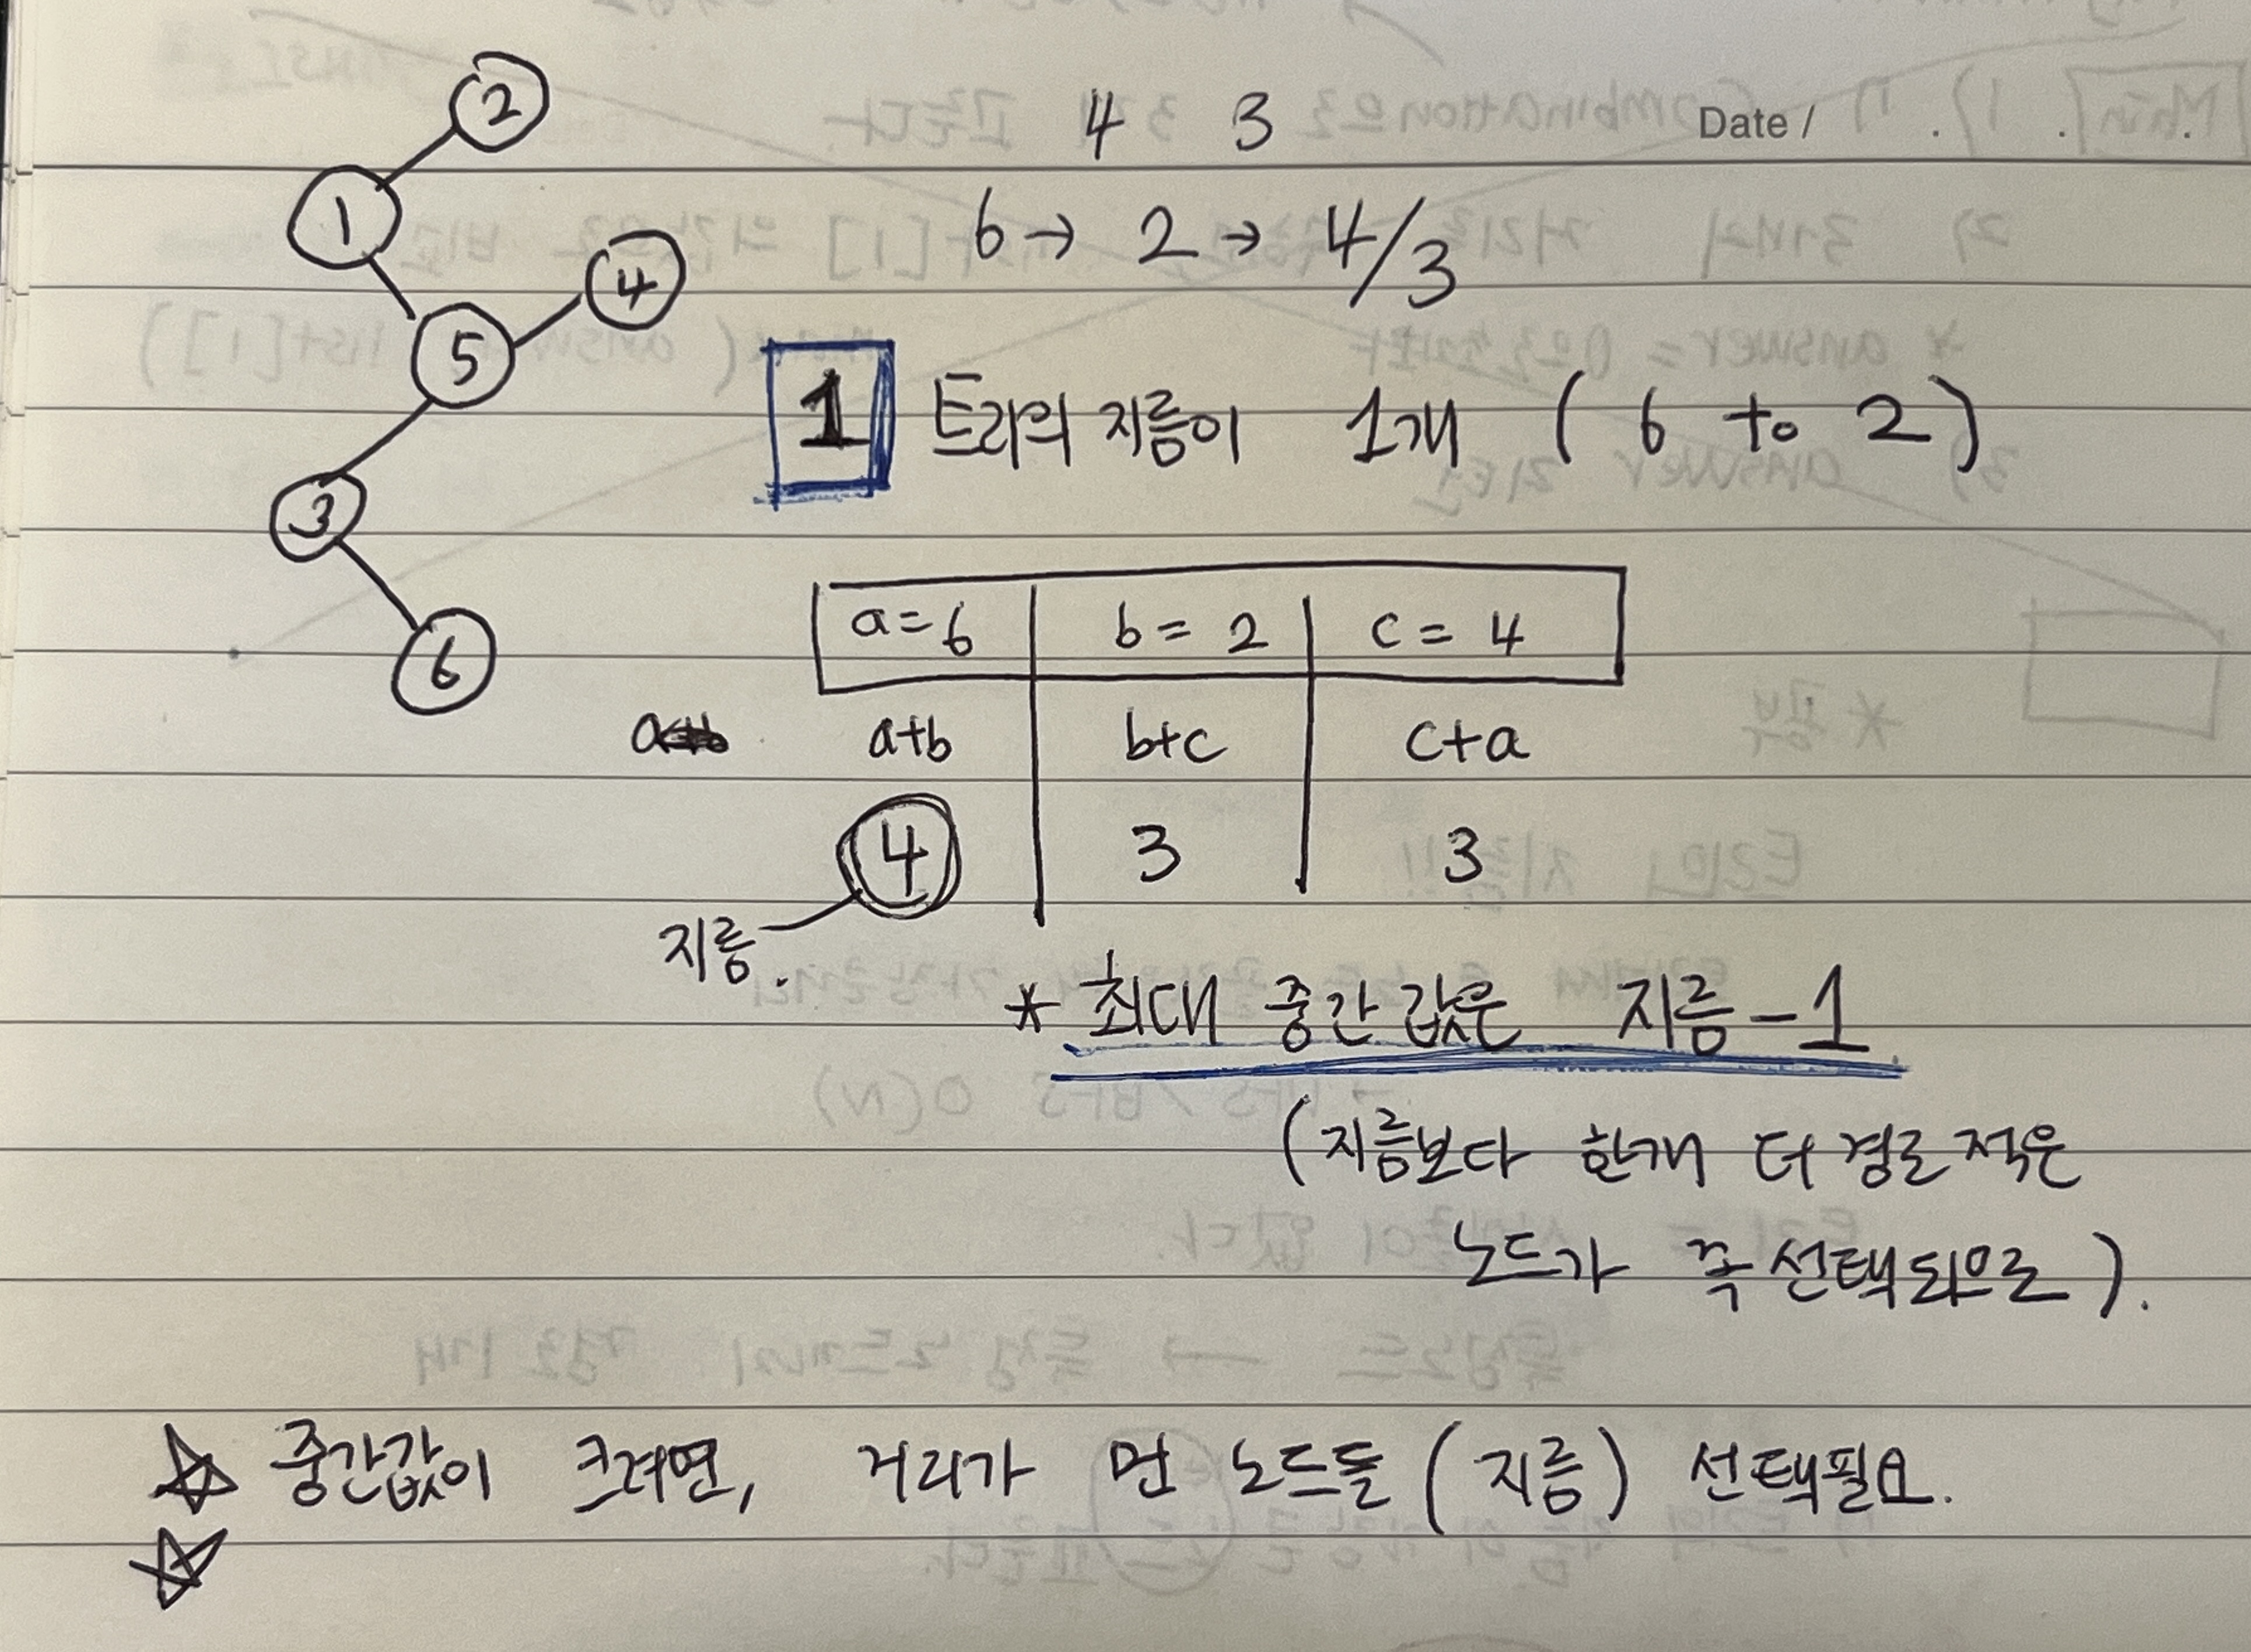 2
1
4
5
3
6
4 3
Date / . . .
6 → 2 → 4/3
1 트리의 지름이 1개 ( 6 to 2 )
a=6 b= 2 c= 4
a+b b+c c+a
4 3 3
지름.
* 최대 중간값은 지름-1
(지름보다 한개 더 경로 적은
노드가 꼭 선택되므로).
중간값이 크려면, 거리가 먼 노드들 (지름) 선택필요.